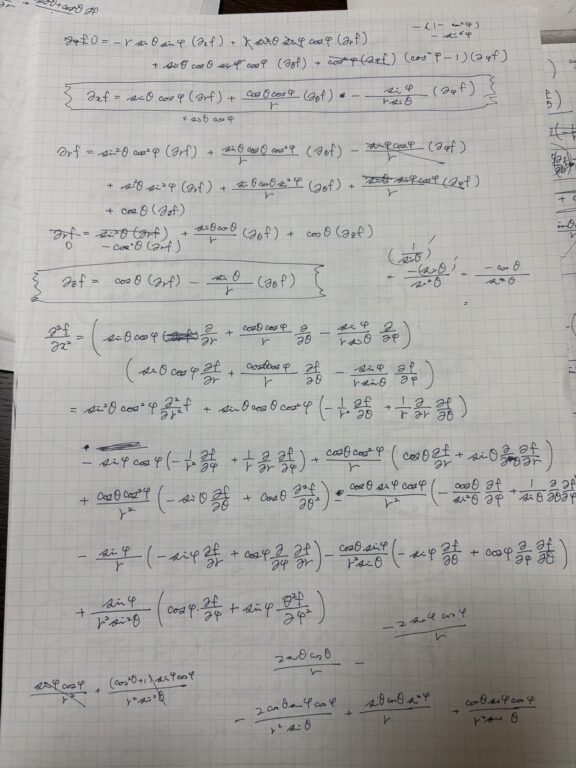 ∂φf 0 = -r sinθ sinφ (∂xf) + r sinθ sinφ cosφ (∂rf)
-(1-cos²φ)
-sin²φ
+ sinθ cosθ cosφ (∂θf) + (cos²φ-1)(∂φf)
∂xf = sinθ cosφ (∂rf) + cosθcosφ/r (∂θf) - sinφ/r sinθ (∂φf)
+ sinθ cosφ
∂rf = sin²θ cos²φ (∂rf) + sinθcosθcos²φ/r (∂θf) - sinφcosφ/r (∂φf)
+ sin²θ sin²φ (∂rf) + sinθcosθsin²φ/r (∂θf) + sinφcosφ/r (∂φf)
+ cosθ (∂zf)
∂rf = sin²θ (∂rf) + sinθcosθ/r (∂θf) + cosθ (∂zf)
0 - cos²θ (∂rf)
(1/sinθ)' = -(sinθ)'/sin²θ = -cosθ/sin²θ
=
∂zf = cosθ (∂rf) - sinθ/r (∂θf)
∂²f/∂x² = (sinθ cosφ ∂/∂r + cosθcosφ/r ∂/∂θ - sinφ/r sinθ ∂/∂φ)
(sinθ cosφ ∂f/∂r + cosθcosφ/r ∂f/∂θ - sinφ/r sinθ ∂f/∂φ)
= sin²θ cos²φ ∂²/∂r² f + sinθ cosθ cos²φ (-1/r² ∂f/∂θ + 1/r ∂/∂r ∂f/∂θ)
- sinφ cosφ (-1/r² ∂f/∂φ + 1/r ∂/∂r ∂f/∂φ) + cosθcos²φ/r (cosθ ∂f/∂r + sinθ ∂/∂θ ∂f/∂r)
+ cosθcos²φ/r² (-sinθ ∂f/∂θ + cosθ ∂²f/∂θ²) - cosθ sinφ cosφ/r² (-cosθ/sin²θ ∂f/∂φ + 1/sinθ ∂/∂θ ∂f/∂φ)
- sinφ/r (-sinφ ∂f/∂r + cosφ ∂/∂φ ∂f/∂r) - cosθ sinφ/r² sinθ (-sinφ ∂f/∂θ + cosφ ∂/∂φ ∂f/∂θ)
+ sinφ/r² sin²θ (cosφ ∂f/∂φ + sinφ ∂²f/∂φ²)
- 2 sinφ cosφ/r
2 sinθ cosθ/r -
sinφ cosφ/r² + (cos²θ+1) sinφ cosφ/r² sin²θ
- 2 cosθ sinφ cosφ/r² sinθ + sinθ cosθ sin²φ/r + cosθ sinφ cosφ/r² sinθ